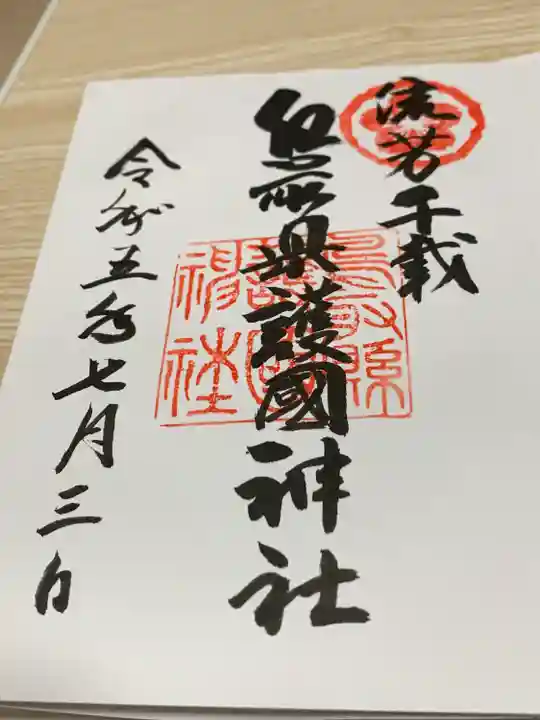 流芳千載
鳥取県護國神社
鳥取縣
護國
神社
令和五年七月三日